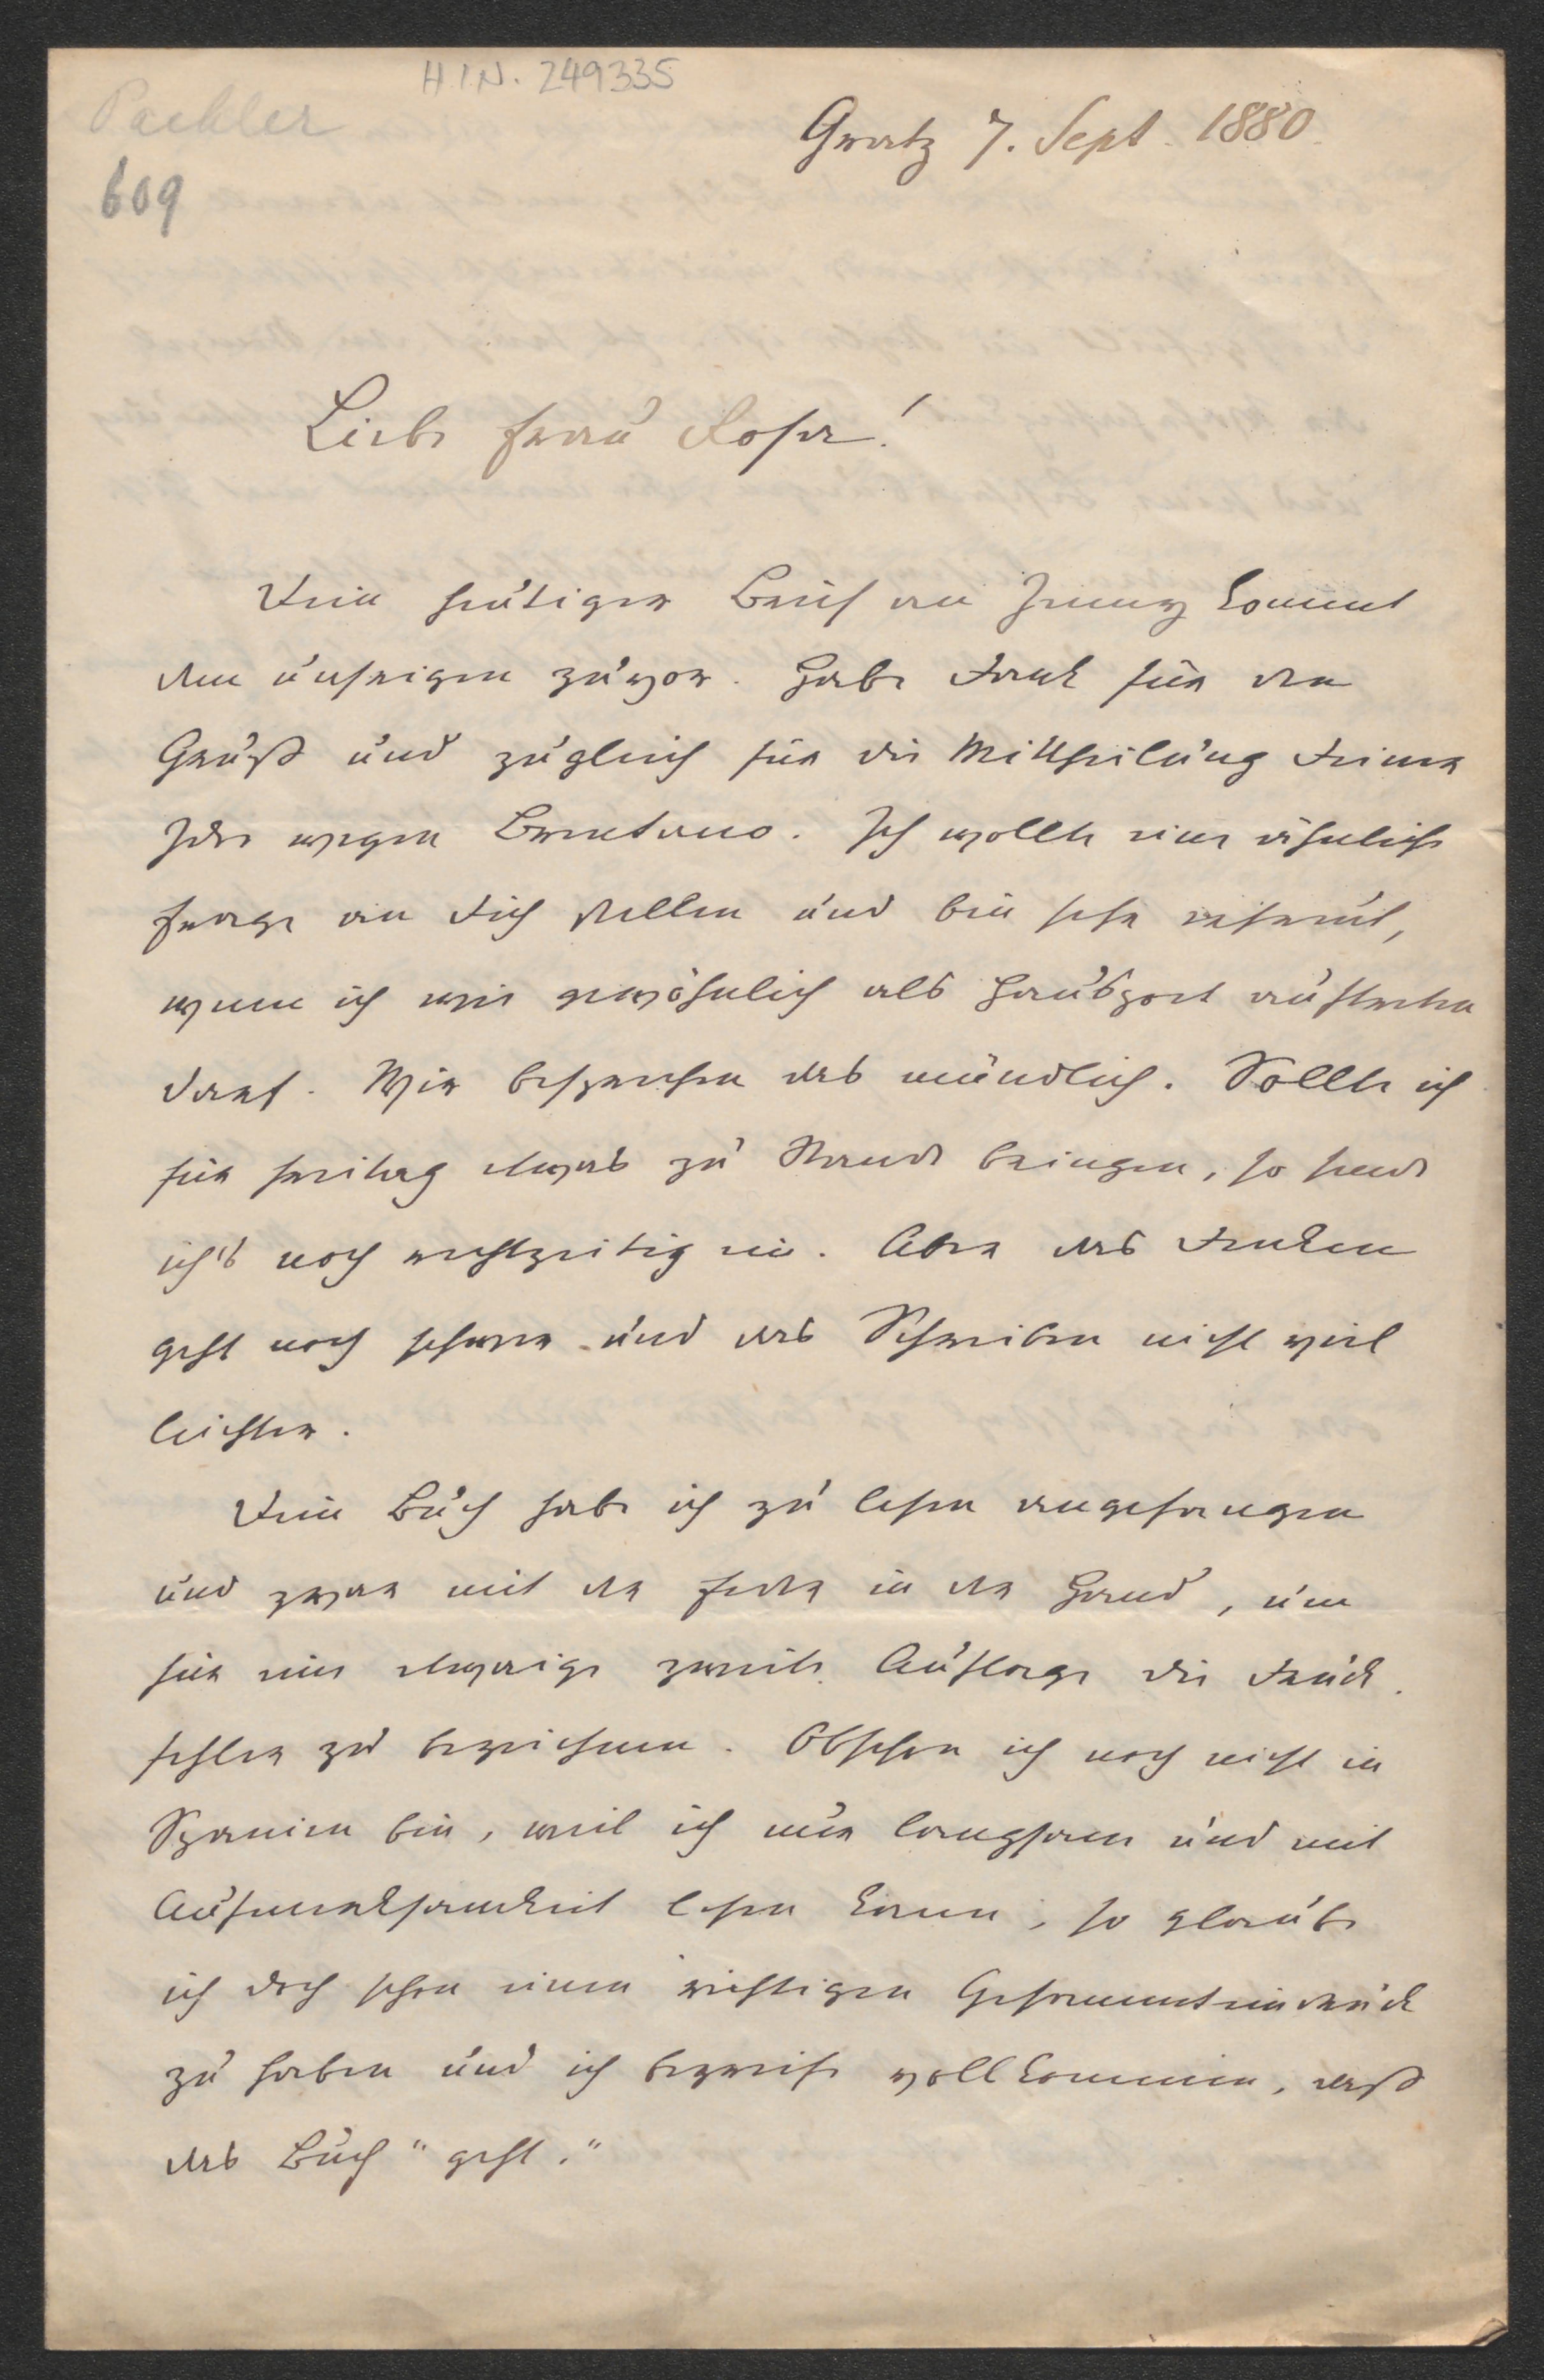 H.I.N. 249335
Pachler
609
Gratz 7. Sept. 1880.
Liebe Frau Rosa!
Dein heutiger Brief an Jenny kommt
dem unsrigen zuvor. Habe Dank für den
Gruß und zugleich für die Mittheilung Deiner
Idee wegen Brentano. Ich wollte eine ähnliche
Frage an Dich stellen und bin sehr erfreut,
wenn ich wie gewöhnlich als Hauspoet auftreten
darf. Wir besprechen das mündlich. Sollte ich
für Freitag etwas zu Stande bringen, so sende
ich's noch rechtzeitig ein. Aber das Denken
geht noch schwer und das Schreiben nicht viel
leichter.
Dein Buch habe ich zu lesen angefangen
und zwar mit der Feder in der Hand, um
für eine etwaige zweite Auflage die Druck-
fehler zu bezeichnen. Obschon ich noch nicht in
Spanien bin, weil ich nur langsam und mit
Aufmerksamkeit lesen kann, so glaube
ich doch schon einen richtigen Gesammteindruck
zu haben und ich begreife vollkommen, daß
das Buch "geht."